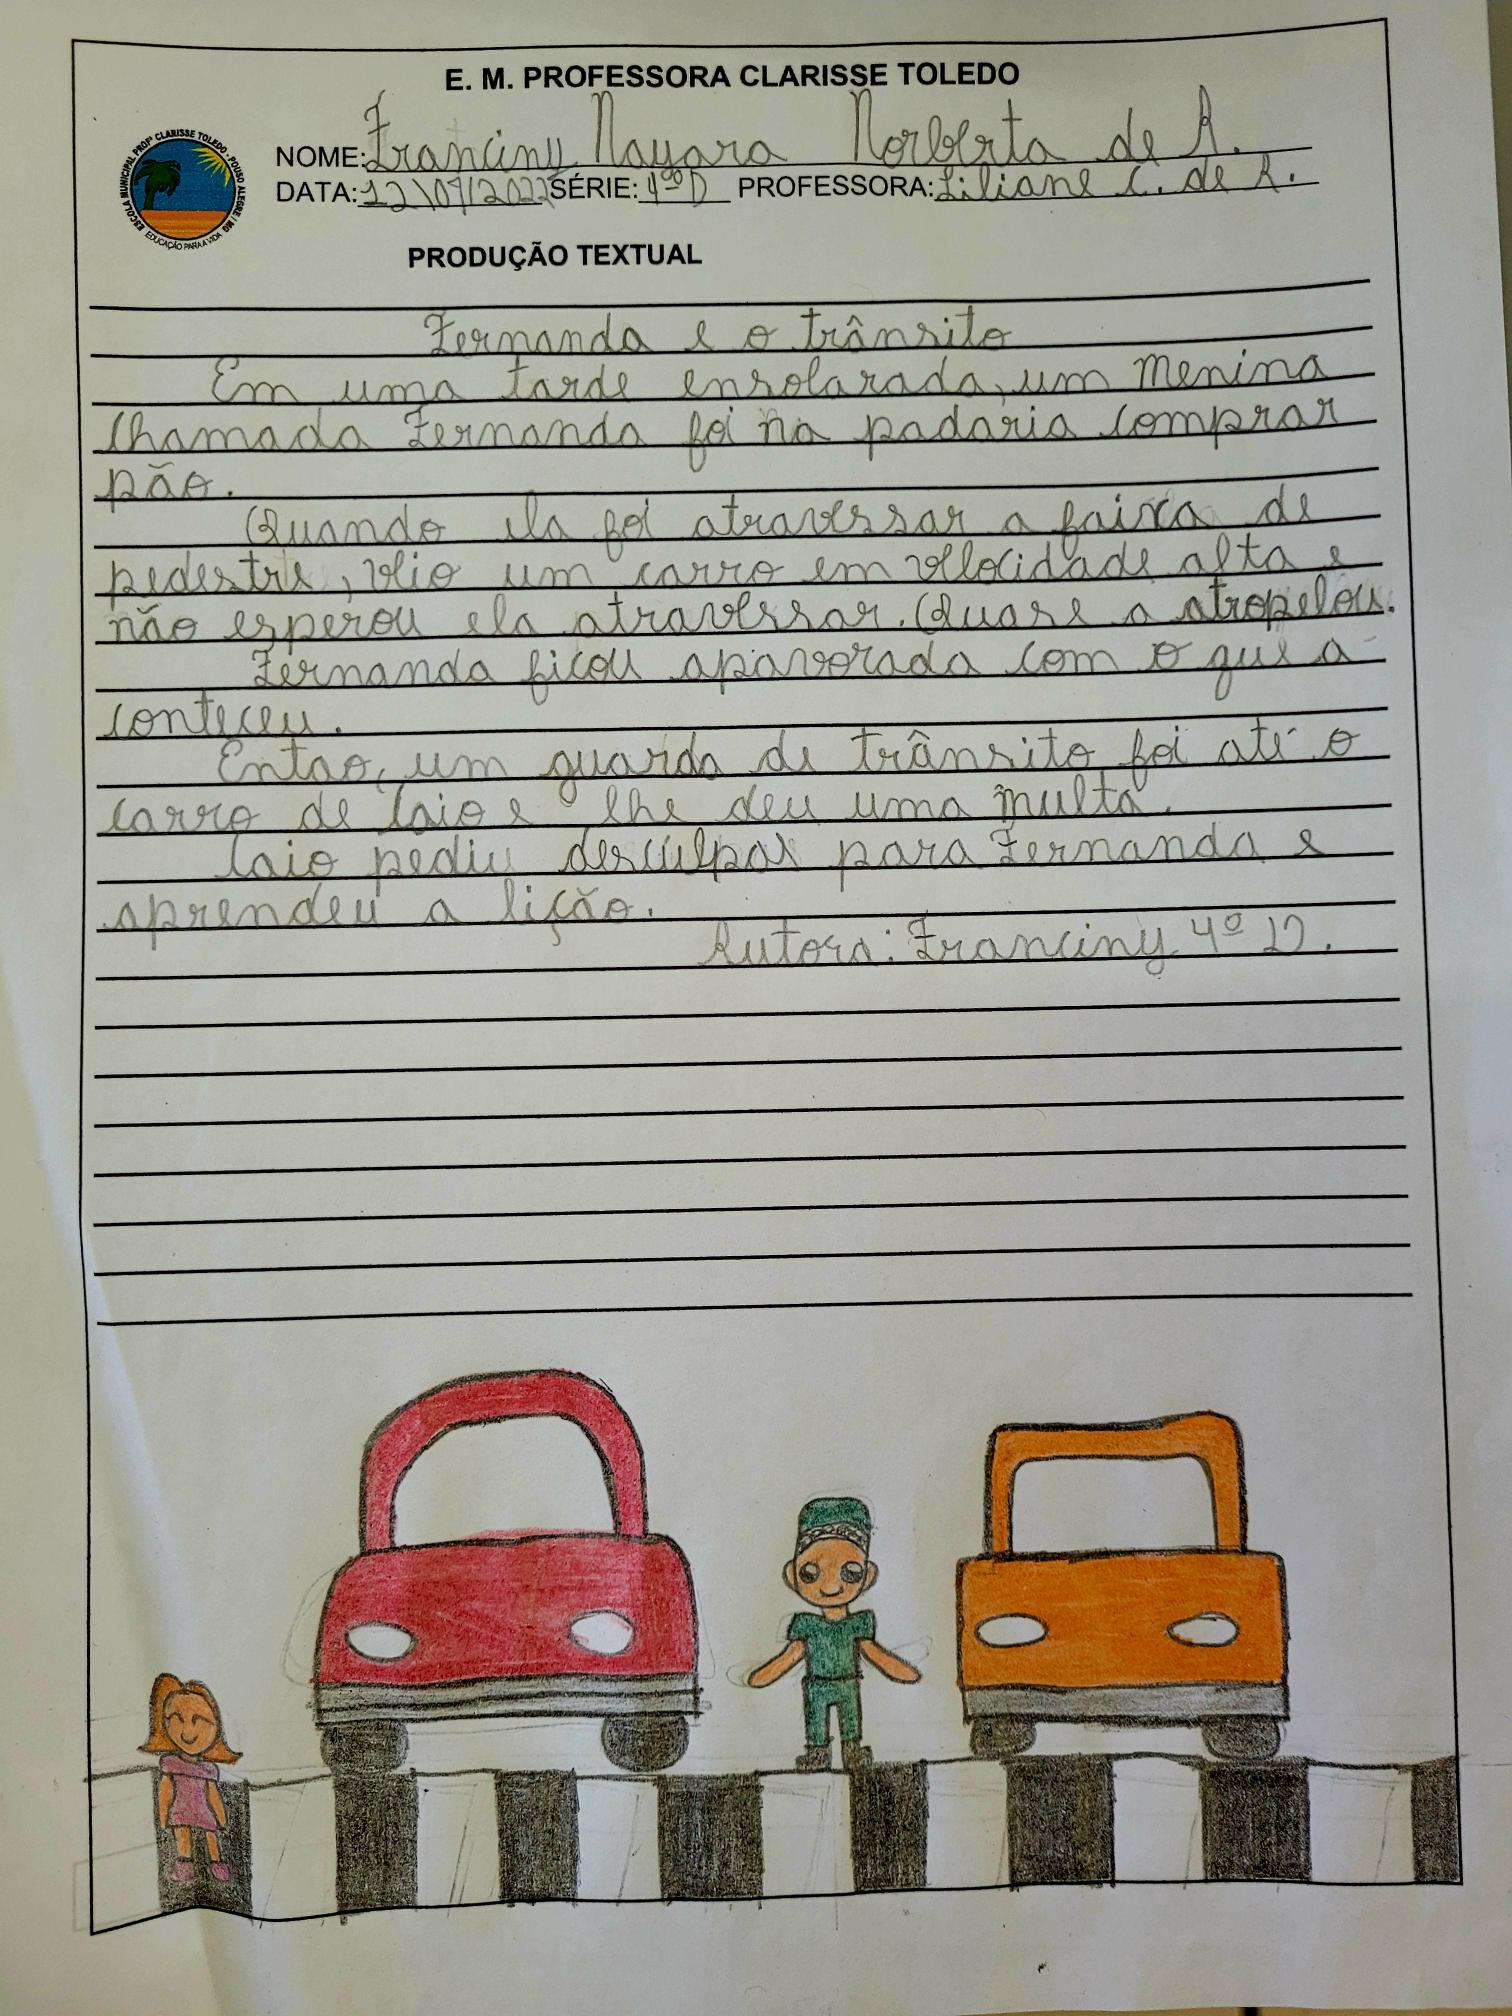 E. M. PROFESSORA CLARISSE TOLEDO
ESCOLA MUNICIPAL PROFª CLARISSE TOLEDO - POUSO ALEGRE / MG
EDUCAÇÃO PARA A VIDA
NOME: Franciny Nayara Norberta de A.
DATA: 12\07/2022 SÉRIE: 4º D PROFESSORA: Liliane C. de A.
PRODUÇÃO TEXTUAL
Fernanda e o trânsito
Em uma tarde ensolarada, um menina
chamada Fernanda foi na padaria comprar
pão.
Quando ela foi atravessar a faixa de
pedestre, veio um carro em velocidade alta e
não esperou ela atravessar. Quase a atropelou.
Fernanda ficou apavorada com o que a-
conteceu.
Entao, um guarda de trânsito foi até o
carro de Caio e lhe deu uma multa.
Caio pediu desculpas para Fernanda e
aprendeu a lição.
Autora: Franciny 4º D.